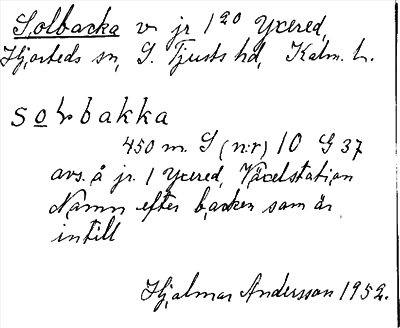 Solbacka v. jr 1²⁰ Yxered,
Hjorteds sn, S. Tjusts hd, Kalm. l.
solbakka
450 m. S (n:r) 10 G 37
avs. å jr. 1 Yxered, Växelstation
Namn efter backen som är
intill
Hjalmar Andersson 1952.